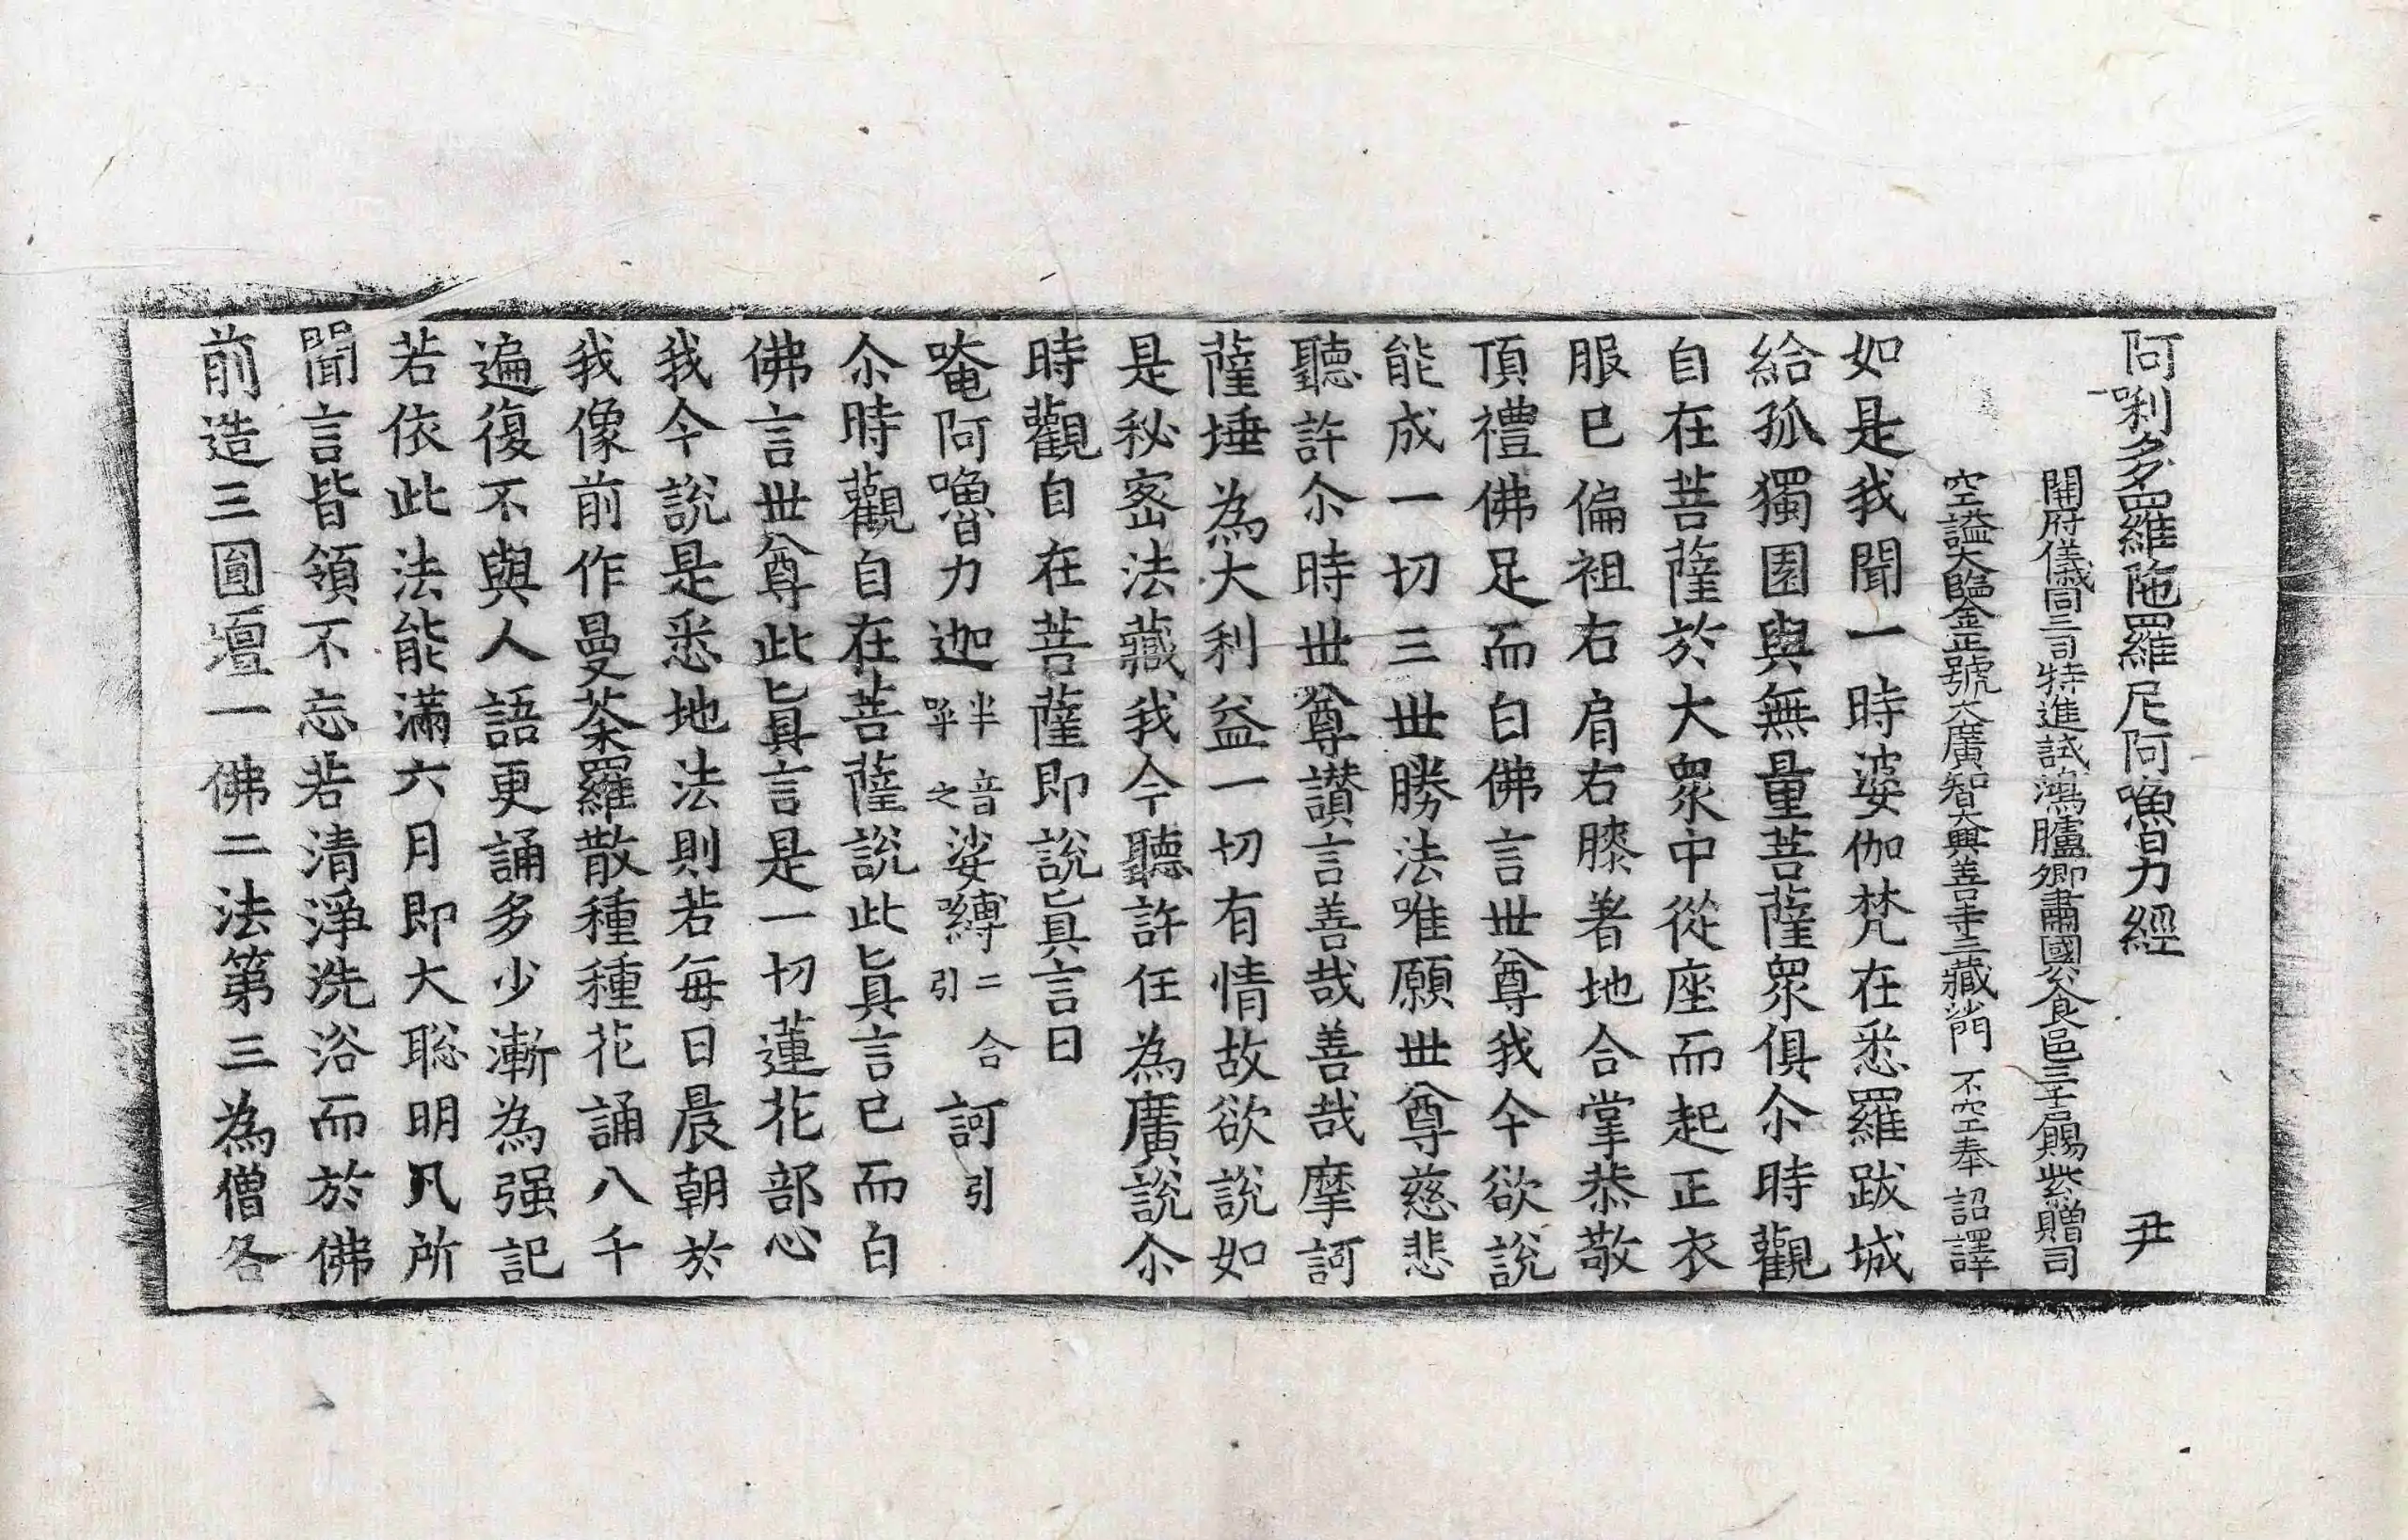 阿唎多羅陁羅尼阿嚕力經　尹
開府儀同三司特進試鴻臚卿肅國公食邑三千戶賜紫贈司
空謚大鑑正號大廣智大興善寺三藏沙門不空奉 詔譯
如是我聞一時婆伽梵在悉羅跋城
給孤獨園與無量菩薩衆俱尒時觀
自在菩薩於大衆中從座而起正衣
服已偏袒右肩右膝著地合掌恭敬
頂禮佛足而白佛言世尊我今欲說
能成一切三世勝法唯願世尊慈悲
聽許尒時世尊讃言善哉善哉摩訶
薩埵為大利益一切有情故欲說如
是秘密法藏我今聽許任為廣說尒
時觀自在菩薩即說眞言曰
唵阿嚕力迦半音呼之娑嚩二合引訶引
尒時觀自在菩薩說此眞言已而白
佛言世尊此眞言是一切蓮花部心
我今說是悉地法則若每日晨朝於
我像前作曼荼羅散種種花誦八千
遍復不與人語更誦多少漸為强記
若依此法能滿六月即大聡明凡所
聞言皆領不忘若清淨洗浴而於佛
前造三圓壇一佛二法第三為僧各